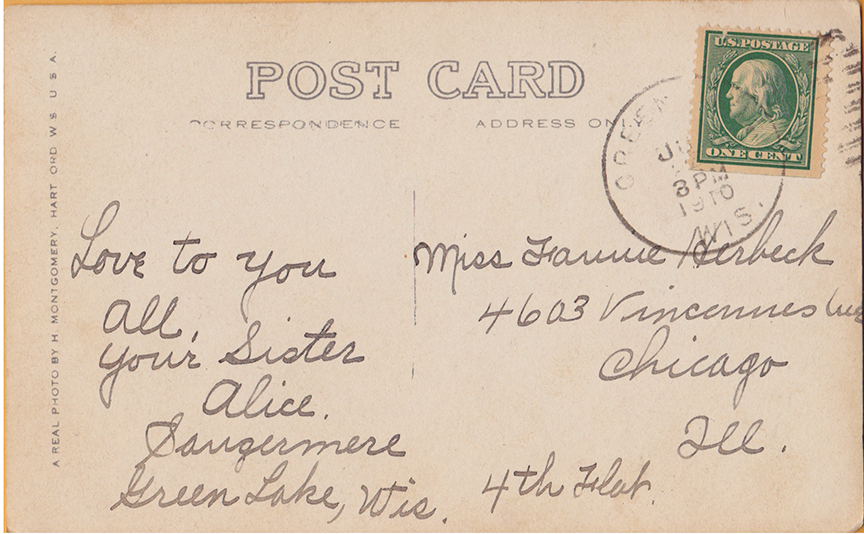 POST CARD
CORRESPONDENCE ADDRESS ONLY
U.S. POSTAGE
ONE CENT
GREEN
3 PM
1910
WIS.
A REAL PHOTO BY H. MONTGOMERY, HART ORD WS U S A.
Love to you
all,
your Sister
Alice.
Saugermere
Green Lake, Wis.
Miss Fannie Herbeck
4603 Vincennes Ave
Chicago
Ill.
4th Flat.